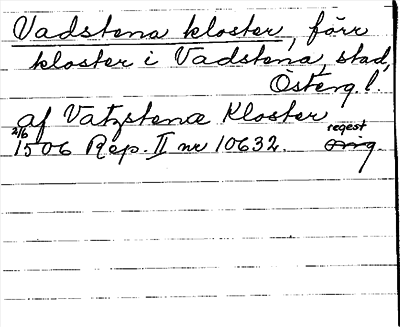 Vadstena kloster, förr
kloster i Vadstena, stad,
Österg. l.
af Vatzstena Kloster
2/6 regest
1506 Rep. II nr 10632. orig.